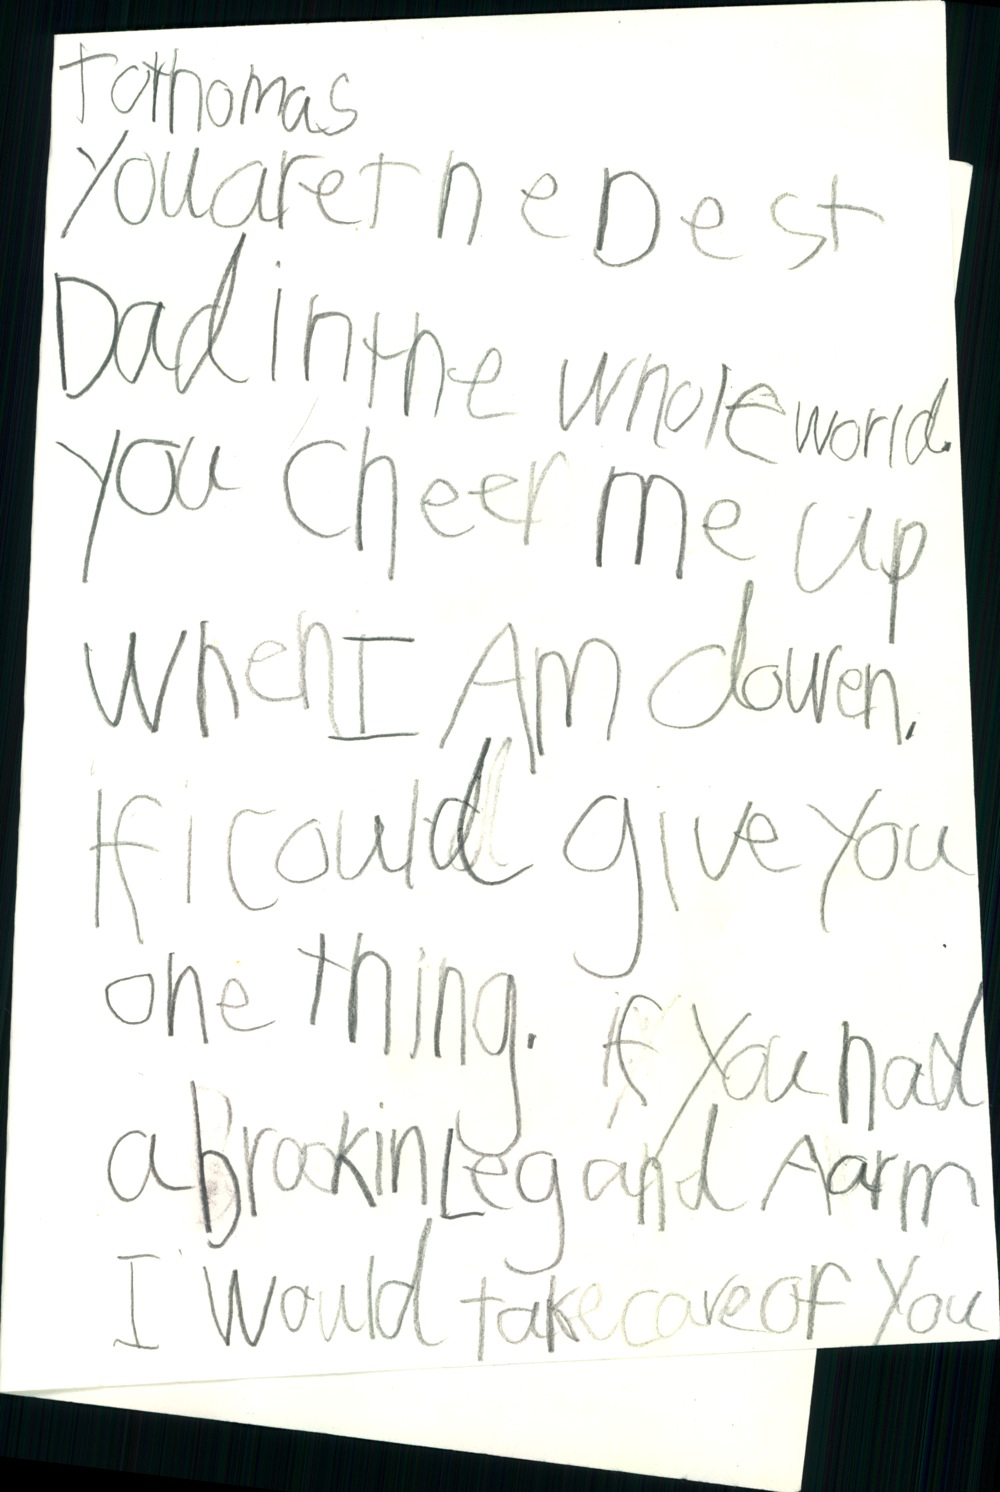 to thomas
You are the Best
Dad in the whole world.
you cheer me up
when I Am dowen.
If i could give you
one thing. if you had
a Brookin Leg and Aarm
I would take care of you